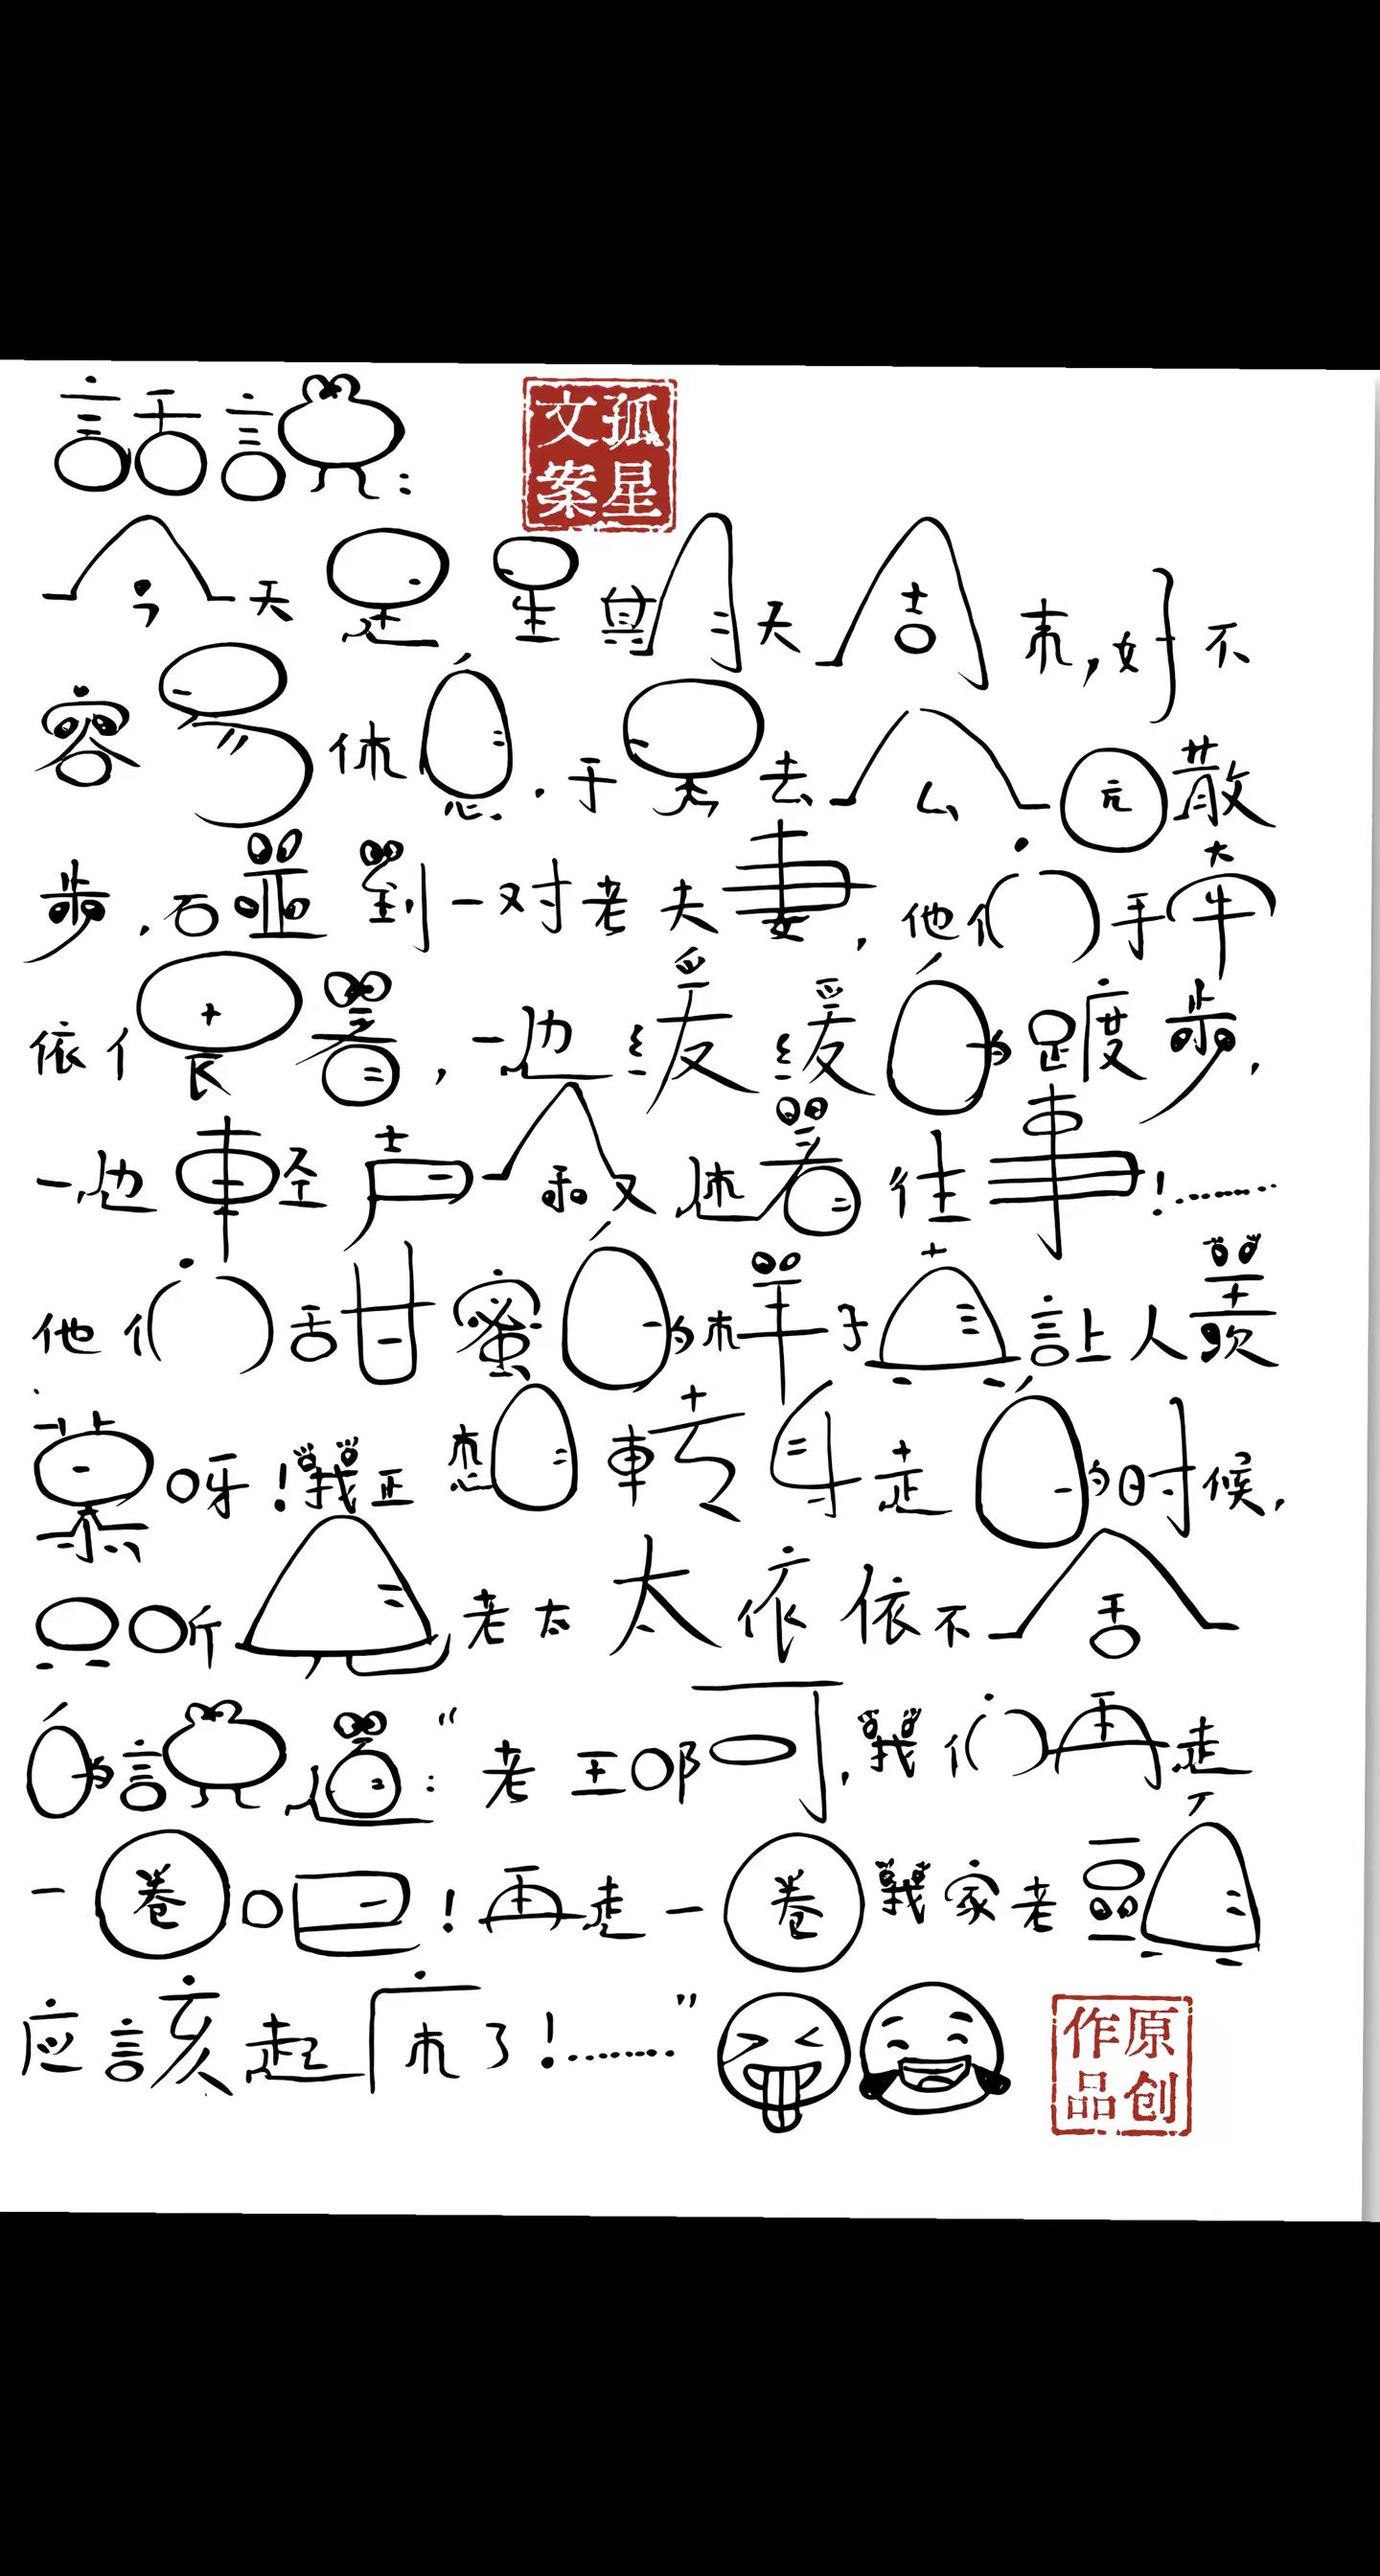 話說：
孤星文案
今天是星期天周末，好不
容易休息．于是去公园散
步．石碰到一对老夫妻，他们手牵
依偎著，一边缓缓的踱步，
一边輕声叙述著往事！………
他们甜蜜的样子真讓人羡
慕呀！我正想轉身走的时候，
只听見老太太依依不舍
的說道：“老王啊，我们再走
一卷吧！再走一卷我家老頭
应該起床了！………”
原创作品